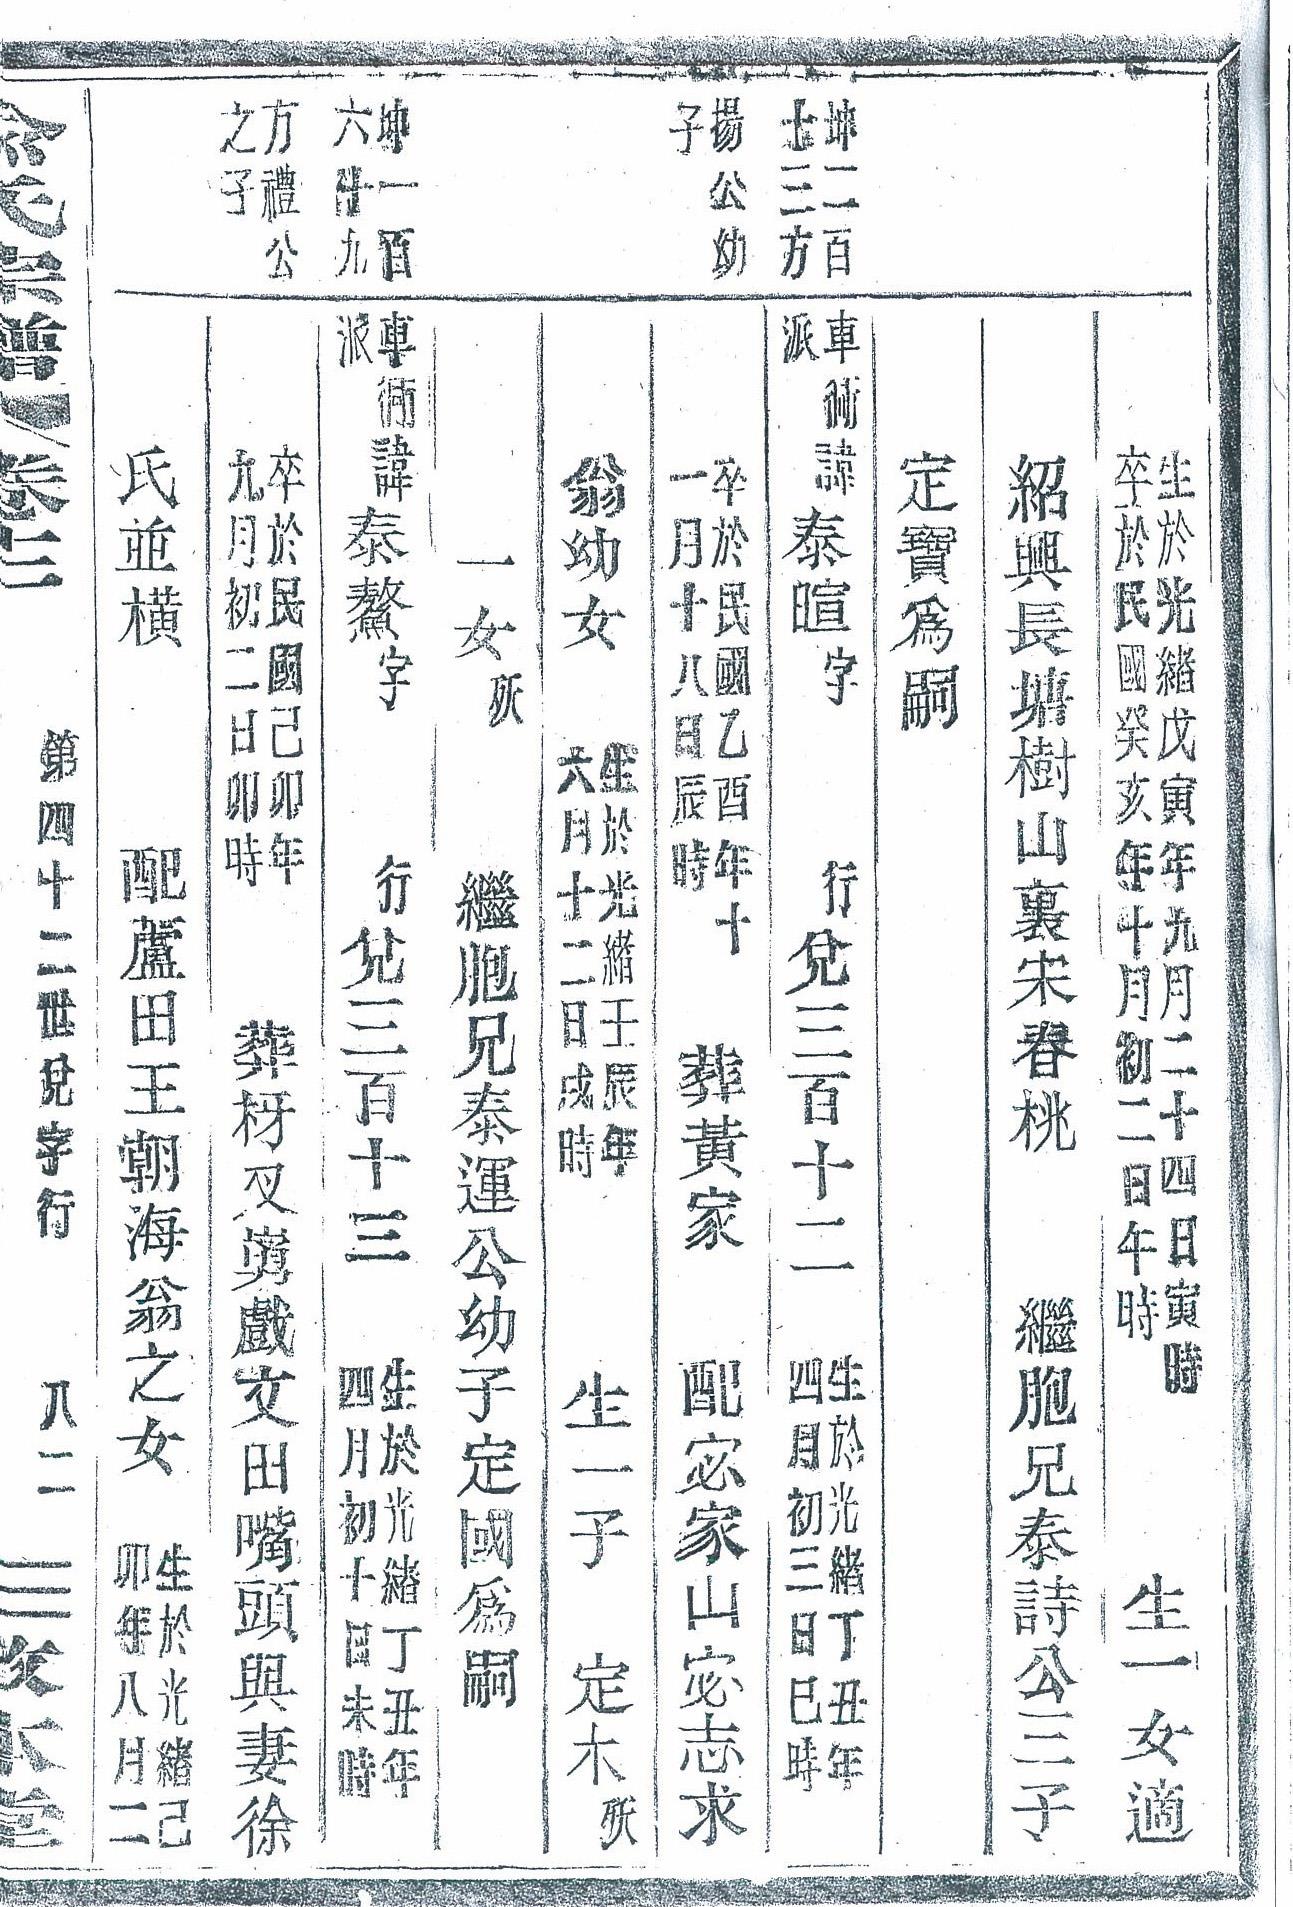 生於光緒戊寅年九月二十四日寅時
卒於民國癸亥年十月初二日午時
生一女適
紹興長塘樹山裏宋春桃 繼胞兄泰詩公三子
定寶爲嗣
坤二百
十三方
車衖諱
派
泰暄字 行兌三百十二
生於光緒丁丑年
四月初三日巳時
揚公幼
子
卒於民國乙酉年十
一月十八日辰時
葬黃家 配宓家山宓志求
翁幼女
生於光緒壬辰年
六月十二日戌時
生一子 定木殀
一女殀 繼胞兄泰運公幼子定國爲嗣
坤一百
六十九
車衖諱
派
泰鰲字 行兌三百十三
生於光緒丁丑年
四月初十日未時
方禮公
之子
卒於民國己卯年
九月初二日卯時
葬枒杈嶴戲文田嘴頭與妻徐
氏並橫 配蘆田王朝海翁之女
生於光緒己
卯年八月二
氏宗譜 卷二 第四十二世兌字行 八二 三 敦本堂